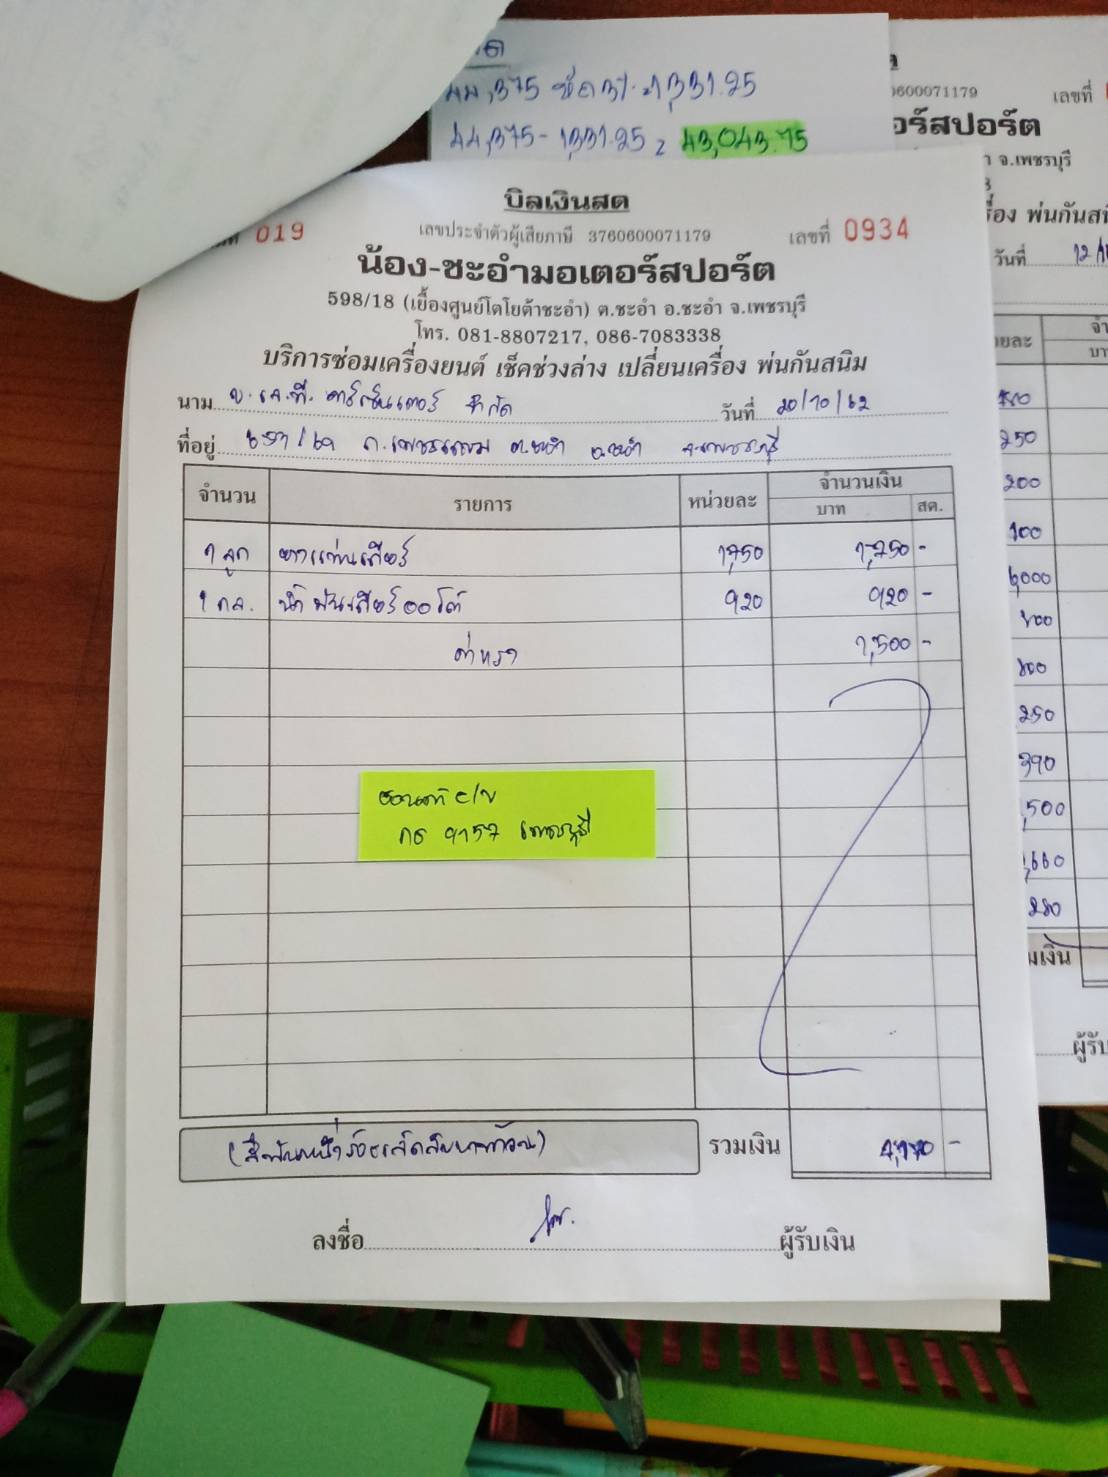 44,375 หัก 3% = 1,331.25
44,375 - 1,331.25 = 43,043.75
3600071179
เลขที่
อร์สปอร์ต
จ.เพชรบุรี
พ่นกันสนิ
วันที่ 12/1
บิลเงินสด
019
เลขประจำตัวผู้เสียภาษี 3760600071179
เลขที่ 0934
น้อง-ชะอำมอเตอร์สปอร์ต
598/18 (เยื้องศูนย์โตโยต้าชะอำ) ต.ชะอำ อ.ชะอำ จ.เพชรบุรี
โทร. 081-8807217, 086-7083338
บริการซ่อมเครื่องยนต์ เช็คช่วงล่าง เปลี่ยนเครื่อง พ่นกันสนิม
นาม จำกัด วันที่ 20/10/62
ที่อยู่ ถ.เพชรเกษม ต.ชะอำ อ.ชะอำ จ.เพชรบุรี
จำนวน รายการ หน่วยละ จำนวนเงิน
บาท สต.
1 ลูก ยางแท่นเกียร์ 1,750 1,750 -
1 กล. น้ำมันเกียร์ออโต้ 920 920 -
ค่าแรง 1,500 -
กธ 9157 เพชรบุรี
(สี่พันหนึ่งร้อยเจ็ดสิบบาทถ้วน) รวมเงิน 4,170 -
ลงชื่อ ผู้รับเงิน
250
200
100
250
390
,500
มเงิน
ผู้รับ